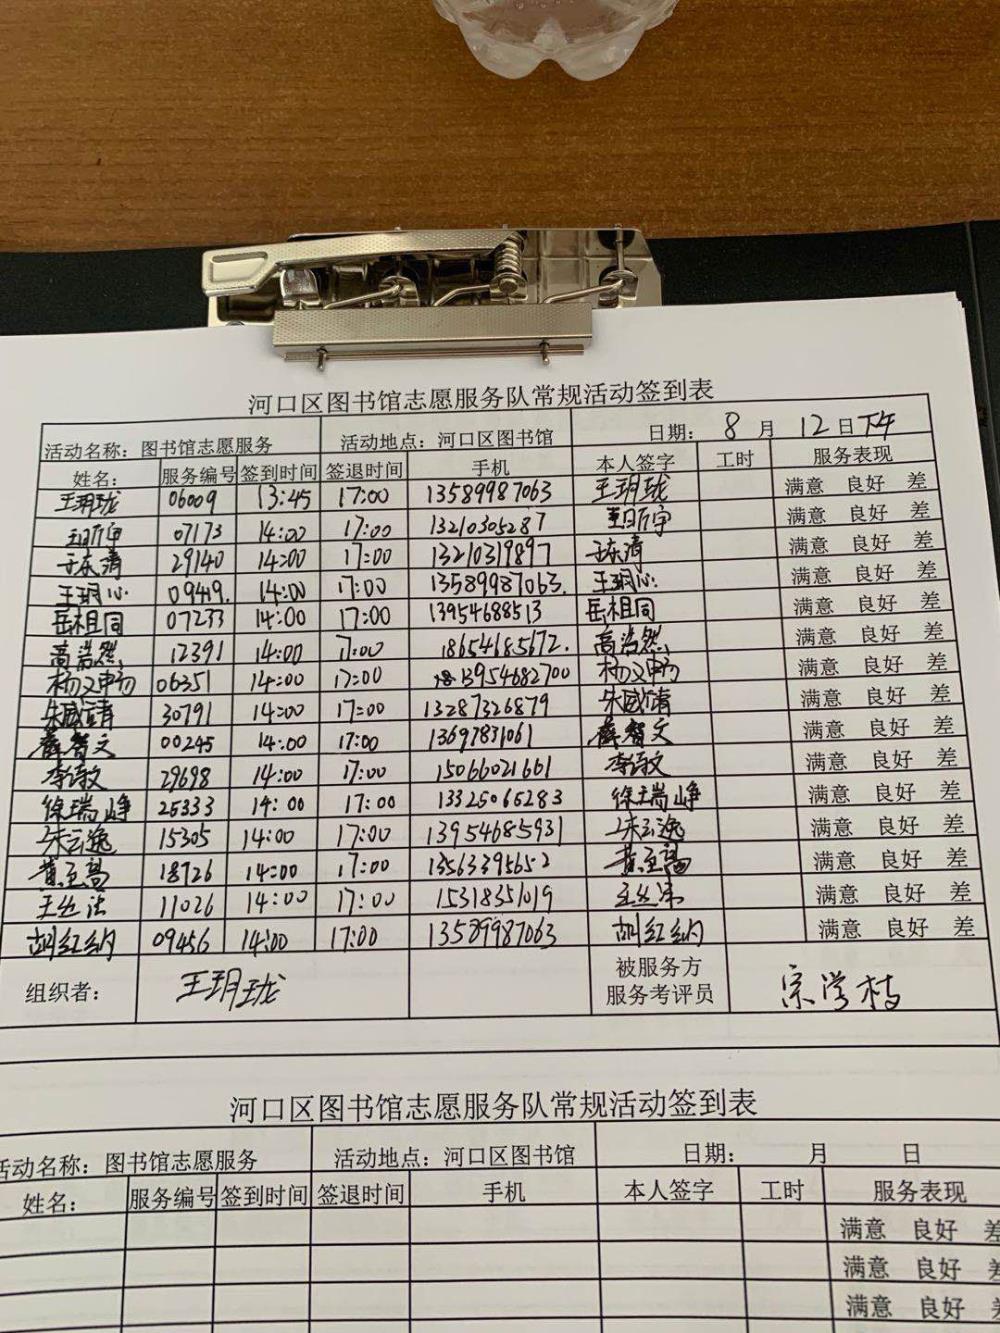 河口区图书馆志愿服务队常规活动签到表
活动名称：图书馆志愿服务 活动地点：河口区图书馆 日期： 8 月 12 日 下午
姓名： 服务编号 签到时间 签退时间 手机 本人签字 工时 服务表现
王玥珑 06009 13:45 17:00 13589987063 王玥珑 满意 良好 差
王昕宇 07173 14:00 17:00 13210305287 王昕宇 满意 良好 差
于东清 29140 14:00 17:00 13210319897 于东清 满意 良好 差
王玥心 09419. 14:00 17:00 13589987063. 王玥心 满意 良好 差
岳祖同 07233 14:00 17:00 13954688513 岳祖同 满意 良好 差
高浩然 12391 14:00 17:00 18654685672. 高浩然 满意 良好 差
杨又畅 06351 14:00 17:00 13954682700 杨又畅 满意 良好 差
朱威靖 30791 14:00 17:00 13287326879 朱威靖 满意 良好 差
薛智文 00245 14:00 17:00 13697831061 薛智文 满意 良好 差
李诗文 29698 14:00 17:00 15066021661 李诗文 满意 良好 差
徐瑞峥 25333 14:00 17:00 13325065283 徐瑞峥 满意 良好 差
朱云逸 15305 14:00 17:00 13954685931 朱云逸 满意 良好 差
黄至高 18726 14:00 17:00 13563395652 黄至高 满意 良好 差
11026 14:00 17:00 15318351019 满意 良好 差
胡红纳 09456 14:00 17:00 13589987063 胡红纳 满意 良好 差
组织者： 王玥珑 被服务方
服务考评员 宗学枝
河口区图书馆志愿服务队常规活动签到表
活动名称：图书馆志愿服务 活动地点：河口区图书馆 日期： 月 日
姓名： 服务编号 签到时间 签退时间 手机 本人签字 工时 服务表现
满意 良好 差
满意 良好 差
满意 良好 差